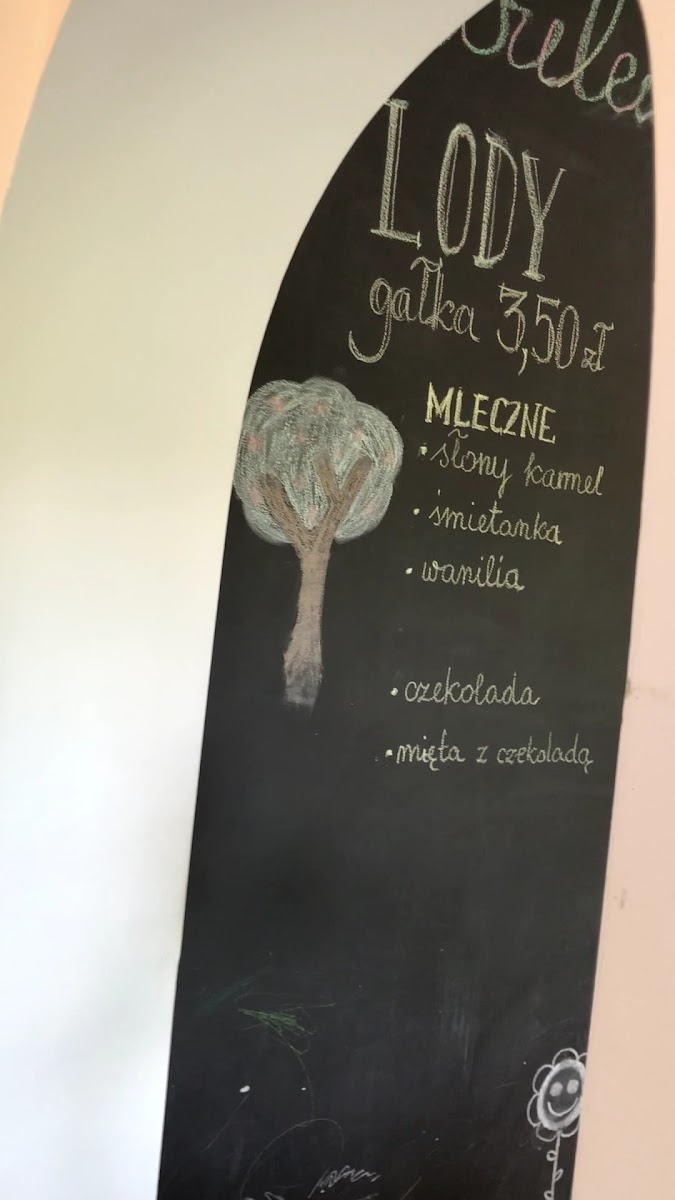 LODY
gałka 3,50 zł
MLECZNE
• słony karmel
• śmietanka
• wanilia
• czekolada
• mięta z czekoladą